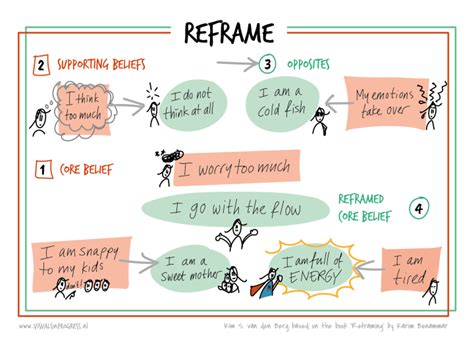 REFRAME
2 SUPPORTING BELIEFS
3 OPPOSITES
I think
too much
I do not
think at all
I am a
cold fish
My emotions
take over
1 CORE BELIEF
I worry too much
I go with the flow
REFRAMED
CORE BELIEF
4
I am snappy
to my kids
don't!
I am a
sweet mother
I am full of
ENERGY
I am
tired
www.VISUALSINPROGRESS.nl
Kim S. van den Berg based on the book 'Reframing' by Karim Benammar